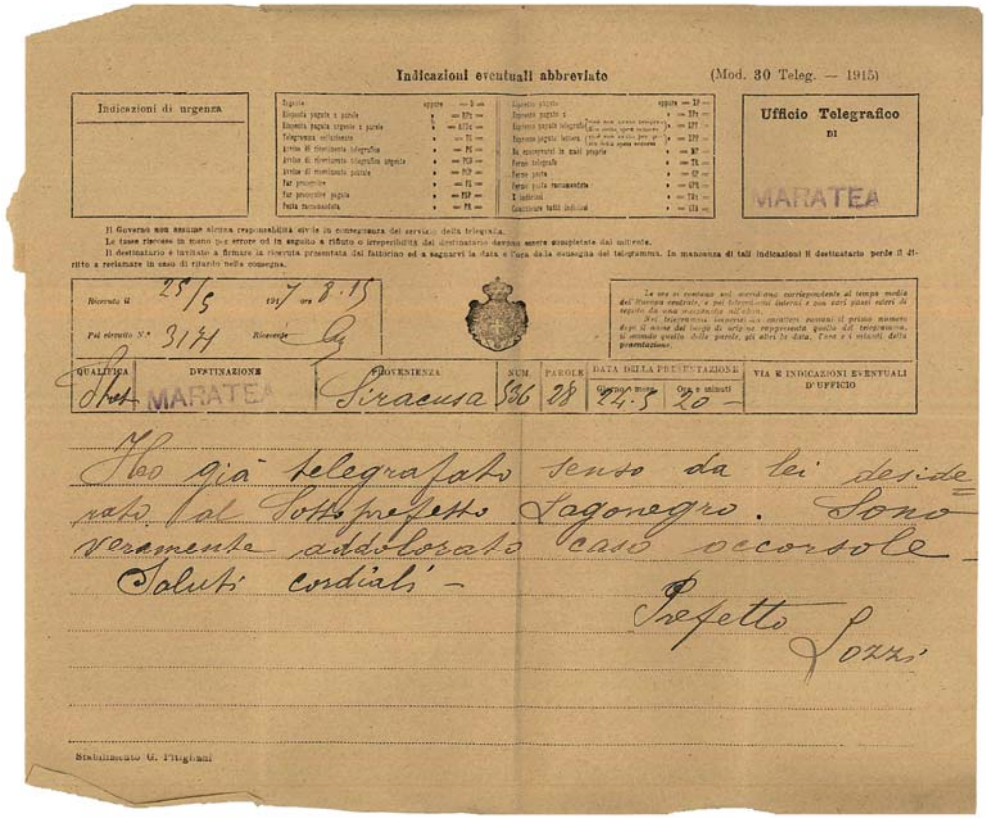 Indicazioni eventuali abbreviate
(Mod. 30 Teleg. — 1915)
Indicazioni di urgenza
Urgente oppure — D —
Risposta pagata x parole » — RPx —
Risposta pagata urgente x parole
Telegramma collazionato » — TC —
Avviso di ricevimento telegrafico » — PC —
Avviso di ricevimento telegrafico urgente » — PCD —
Avviso di ricevimento postale » — PCP —
Far proseguire » — FS —
Far proseguire pagata
Posta raccomandata » — PR —
Espresso pagato oppure — XP —
Espresso pagato x
Espresso pagato telegrafo » — XPT —
Espresso pagato lettera » — XPP —
Da consegnarsi in mani proprie » — MP —
Fermo telegrafo » — TR —
Fermo posta » — GP —
Fermo posta raccomandata » — GPR —
X indirizzi » — TMx —
Comunicare tutti indirizzi » — CTA —
Ufficio Telegrafico
DI
MARATEA
Il Governo non assume alcuna responsabilità civile in conseguenza del servizio della telegrafia.
Le tasse riscosse in meno per errore od in seguito a rifiuto o irreperibilità del destinatario devono essere completate dal mittente.
Il destinatario è invitato a firmare la ricevuta presentata dal fattorino ed a segnarvi la data e l'ora della consegna del telegramma. In mancanza di tali indicazioni il destinatario perde il di-
ritto a reclamare in caso di ritardo nella consegna.
Ricevuto il 25/5 1917 ore 8.15
Pel circuito N.° 3171 Ricevente
Le ore si contano sul meridiano corrispondente al tempo medio
dell'Europa centrale, e pei telegrammi interni e con vari paesi esteri di
seguito da una mezzanotte all'altra.
Nei telegrammi impressi in caratteri romani il primo numero
dopo il nome del luogo di origine rappresenta quello del telegramma,
il secondo quello delle parole, gli altri la data, l'ora e i minuti della
presentazione.
QUALIFICA DESTINAZIONE PROVENIENZA NUM. PAROLE DATA DELLA PRESENTAZIONE VIA E INDICAZIONI EVENTUALI
D'UFFICIO
Giorno e mese Ora e minuti
MARATEA Siracusa 536 28 24.5 20 —
Ho già telegrafato senso da lei deside=
rato al Sottoprefetto Lagonegro. Sono
veramente addolorato caso occorsole —
Saluti cordiali —
Prefetto
Lozzi
Stabilimento G. Pitigliani